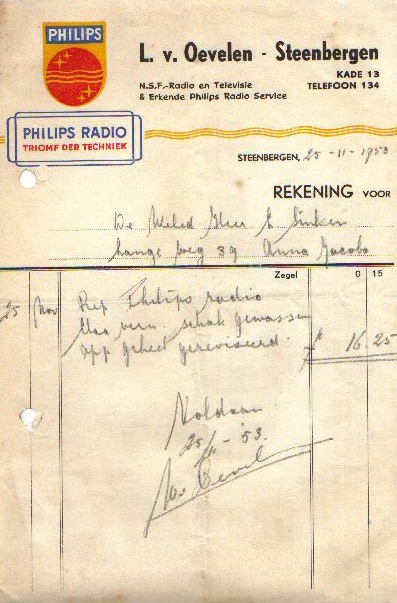 PHILIPS
L. v. Oevelen - Steenbergen
KADE 13
N.S.F.-Radio en Televisie TELEFOON 134
& Erkende Philips Radio Service
PHILIPS RADIO
TRIOMF DER TECHNIEK
STEENBERGEN, 25-11-1953
REKENING VOOR
De Heer Sinken
Lange weg 39 Anna Jacoba
Zegel 0 15
25 Nov Rep Philips radio
vern. schak gewassen
app geheel gereviseerd. f 16.25
Voldaan
25/11-'53.